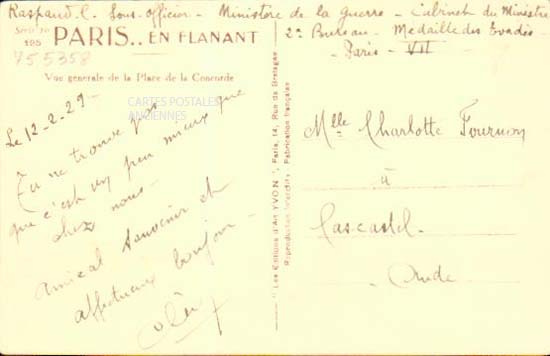 Raspaud. C. Sous-Officier - Ministère de la Guerre - Cabinet du Ministre
2e Bureau - Medaille des Evadés -
- Paris - VII
Série No
125
PARIS.. EN FLANANT
755358
Vue générale de la Place de la Concorde
CARTES POSTALES
ANCIENNES
Le 12-2-29-
Tu ne trouve pas
que c'est un peu mieux que
chez nous -
Amical souvenir et
affectueux bonjour -
"Les Editions d'Art YVON", Paris, 14, Rue de Bretagne
Reproduction interdite Fabrication française
Mlle Charlotte Fournon
à
Cascastel.
Aude